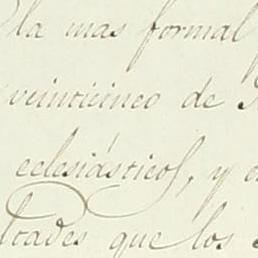 la mas formal
veinticinco de
eclesiásticos, y
ltades que los